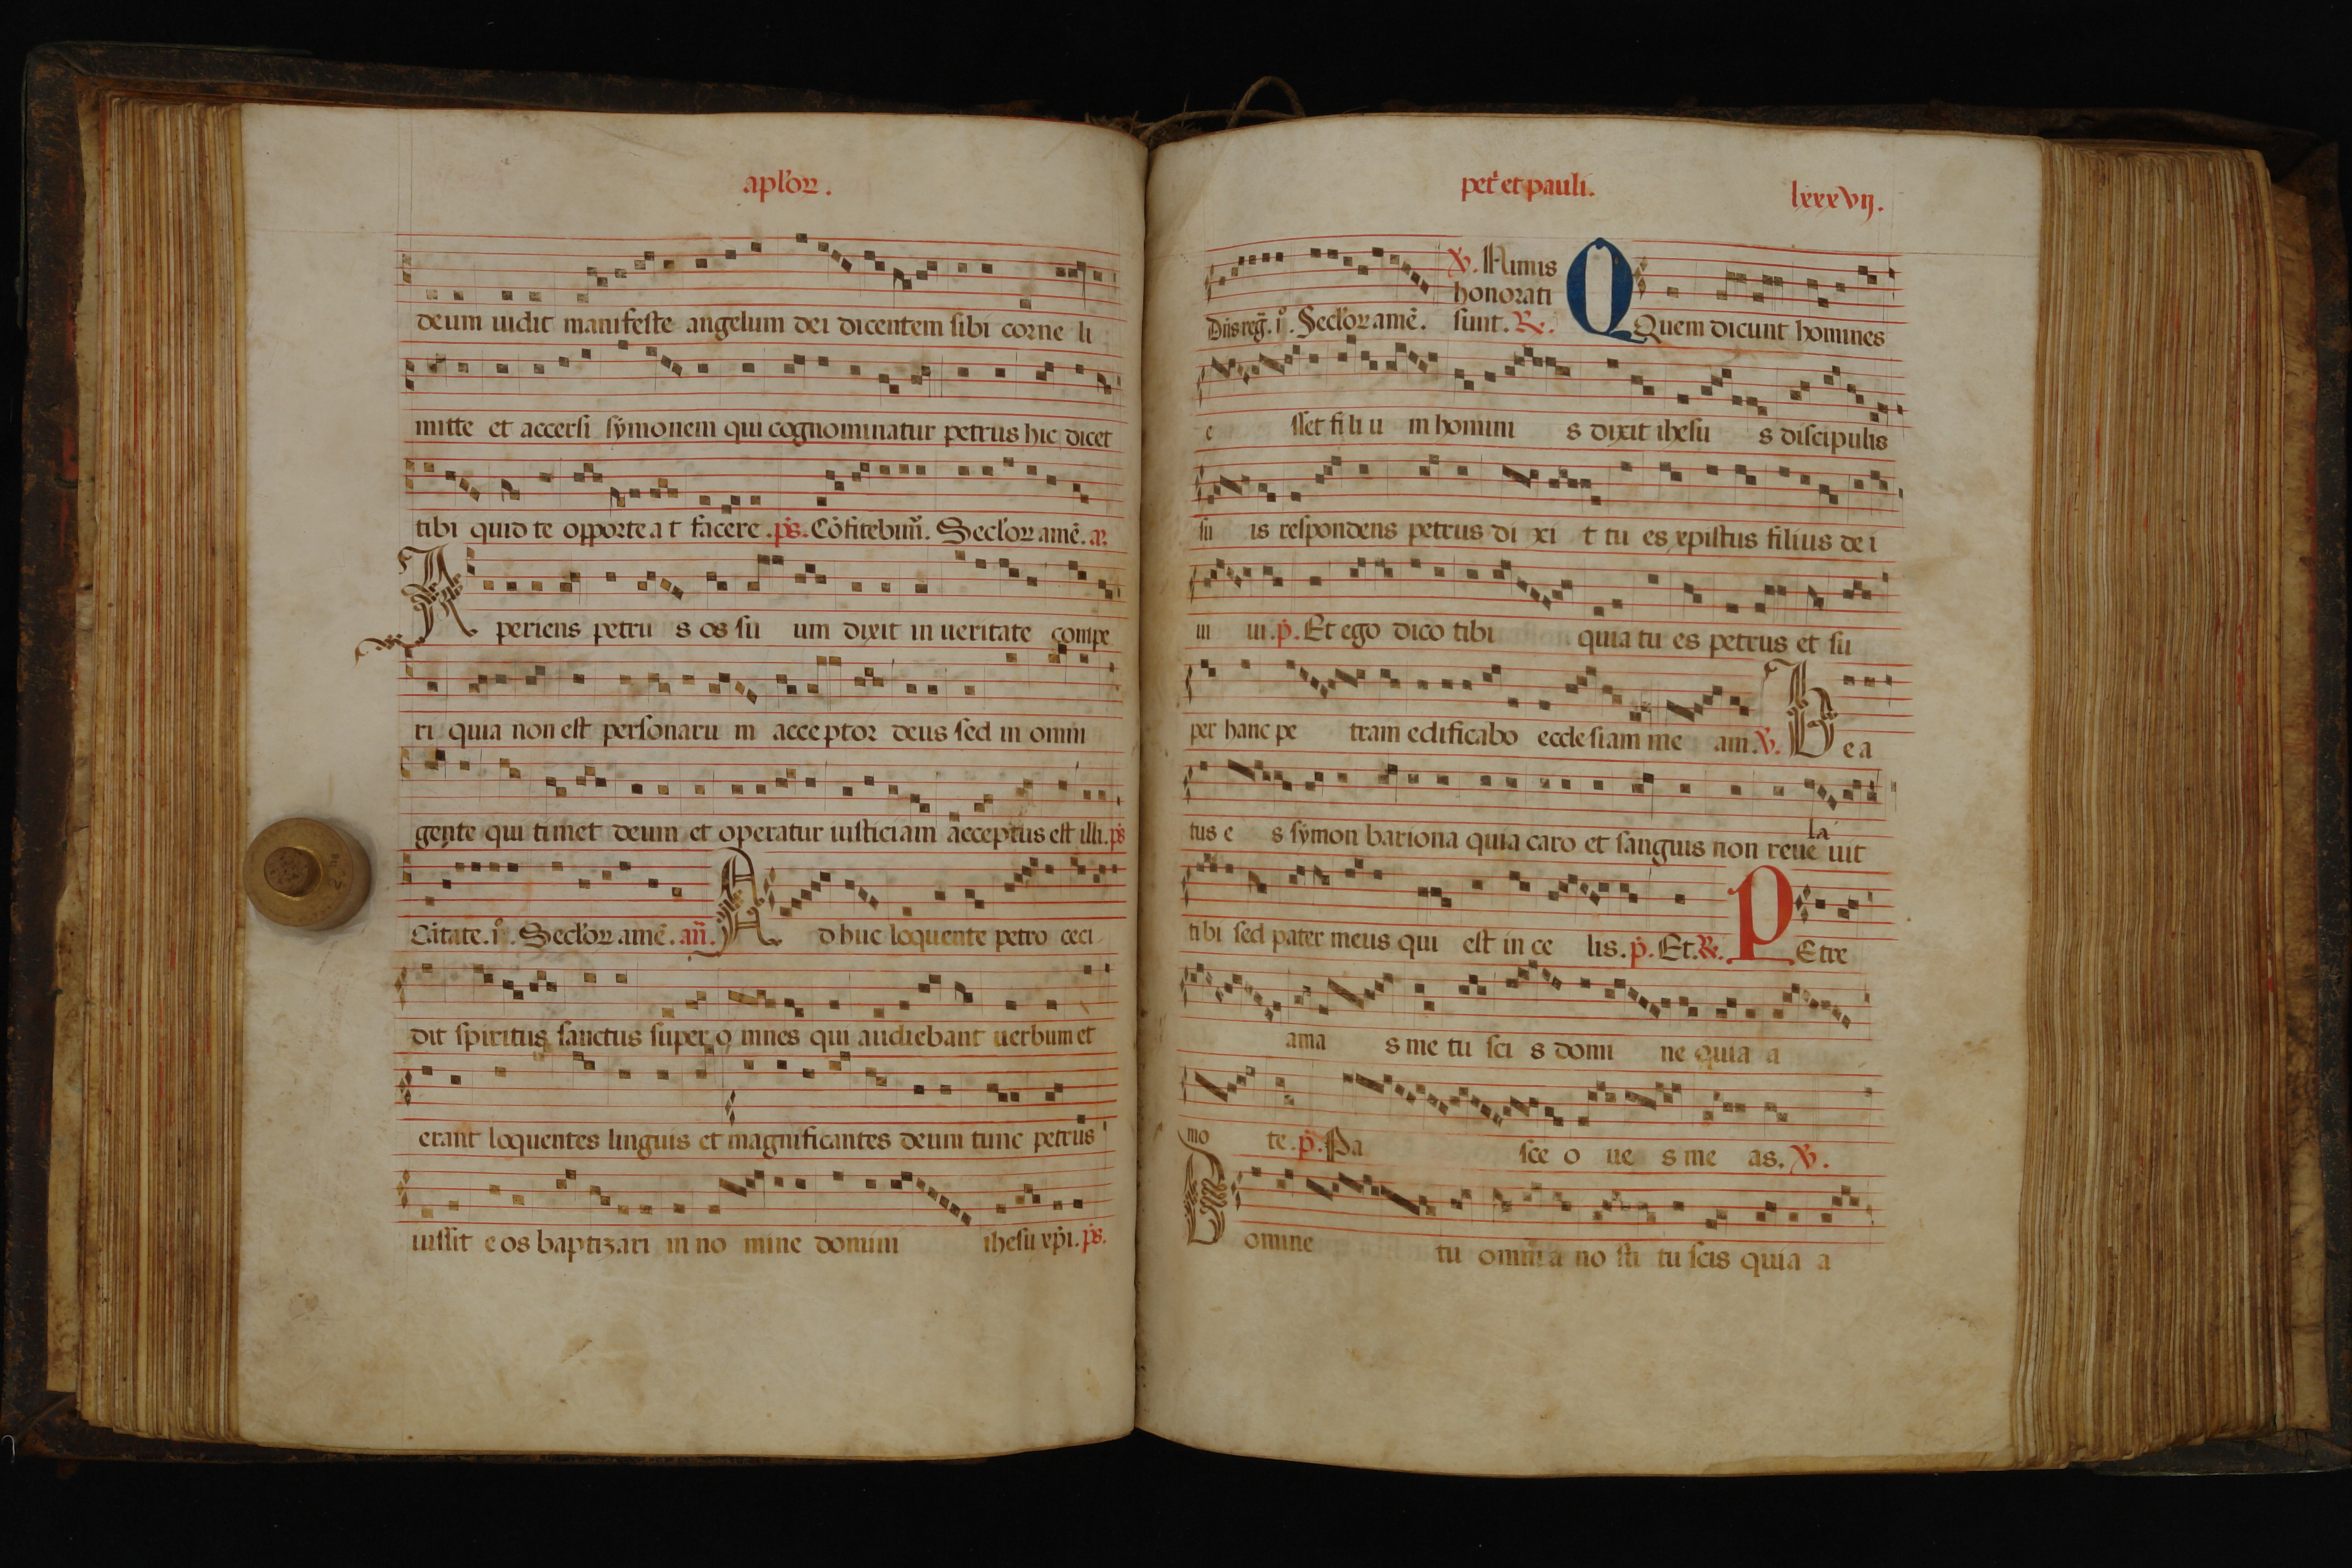 apl'oꝝ.
deum uidit manifeste angelum dei dicentem sibi corne li
mitte et accersi sẏmonem qui cognominatur petrus hic dicet
tibi quid te opporte a t facere .ps. Cōfitebim̃. Secl'oꝝ amē. a.
A periens petru s os su um dixit in ueritate compe
ri quia non est personaru m acceptor deus sed in omni
gente qui timet deum et operatur iusticiam acceptus est illi. ps
Cātate. i. Secl'oꝝ amē. añ. A dhuc loquente petro ceci
dit spiritus sanctus super o mnes qui audiebant uerbum et
erant loquentes linguis et magnificantes deum tunc petrus
iussit e os baptizari in no mine domini ihesu xp̄i. ps.
pet' et pauli.
lxxxvij.
Dñs reg̃. i. Secl'oꝝ amē.
℣. Nimis
honorati
sunt. ℟.
Q Quem dicunt homines
e sset fi li u m homini s dixit ihesu s discipulis
su is respondens petrus di xi t tu es xpistus filius de i
ui ui. p̄. Et ego dico tibi quia tu es petrus et su
per hanc pe tram edificabo ecclesiam me am. ℣. B e a
tus e s sẏmon bariona quia caro et sanguis non reue la uit
tibi sed pater meus qui est in ce lis. p̄. Et. ℟. P Etre
ama s me tu sci s domi ne quia a
mo te. p̄. Pa sce o ue s me as. ℣.
D omine tu omnia no sti tu scis quia a